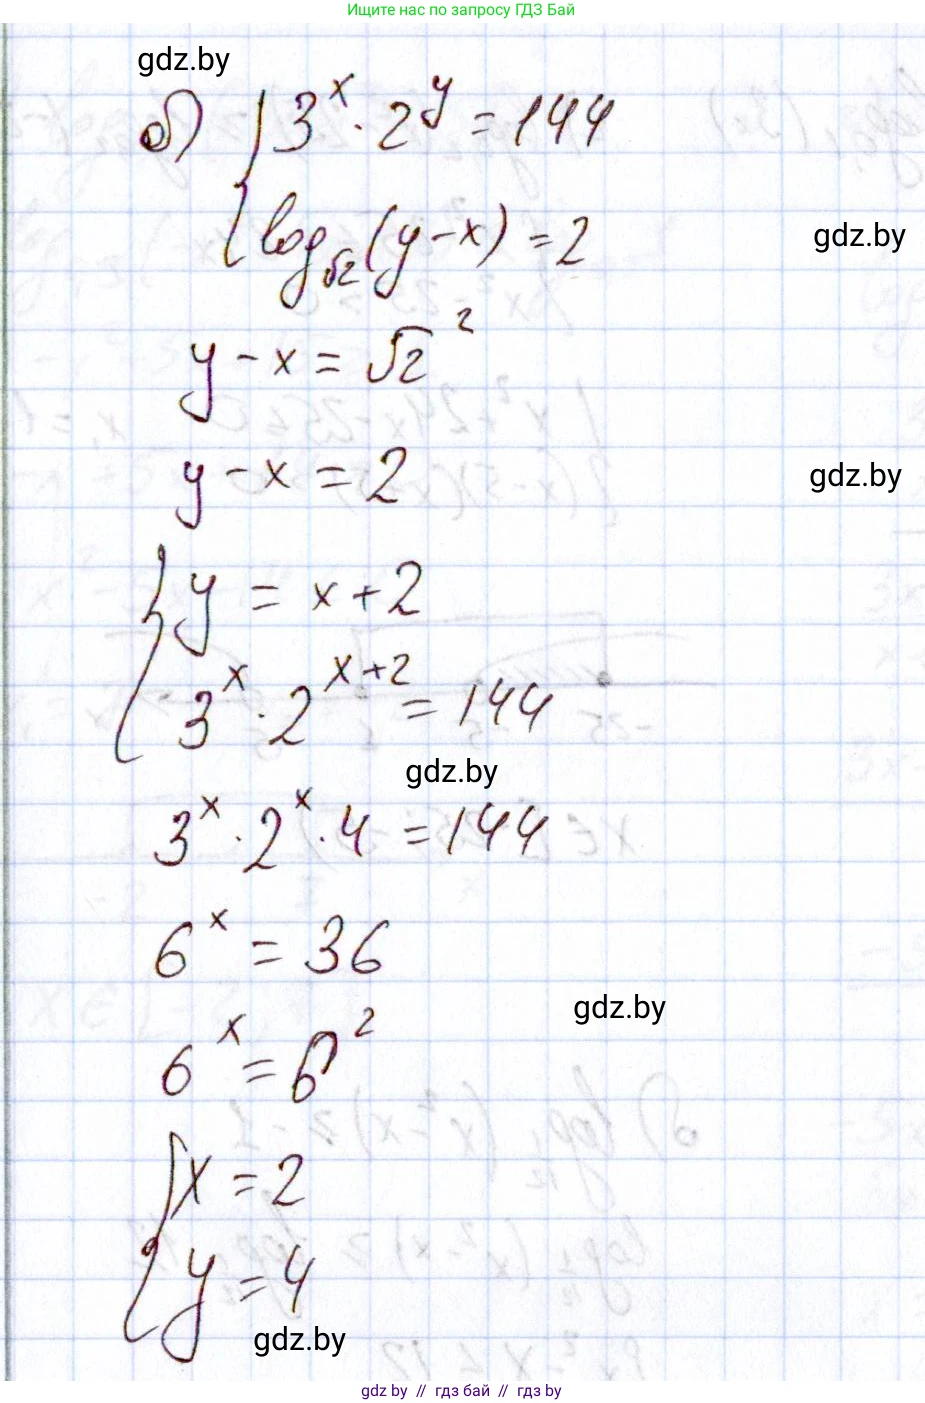 Ищите нас по запросу ГДЗ Бай
gdz.by
б) { 3^x · 2^y = 144
log_√2 (y - x) = 2
gdz.by
y - x = √2^2
y - x = 2
gdz.by
{ y = x + 2
3^x · 2^(x+2) = 144
gdz.by
3^x · 2^x · 4 = 144
6^x = 36
gdz.by
6^x = 6^2
{ x = 2
y = 4
gdz.by
gdz by // гдз бай // гдз by